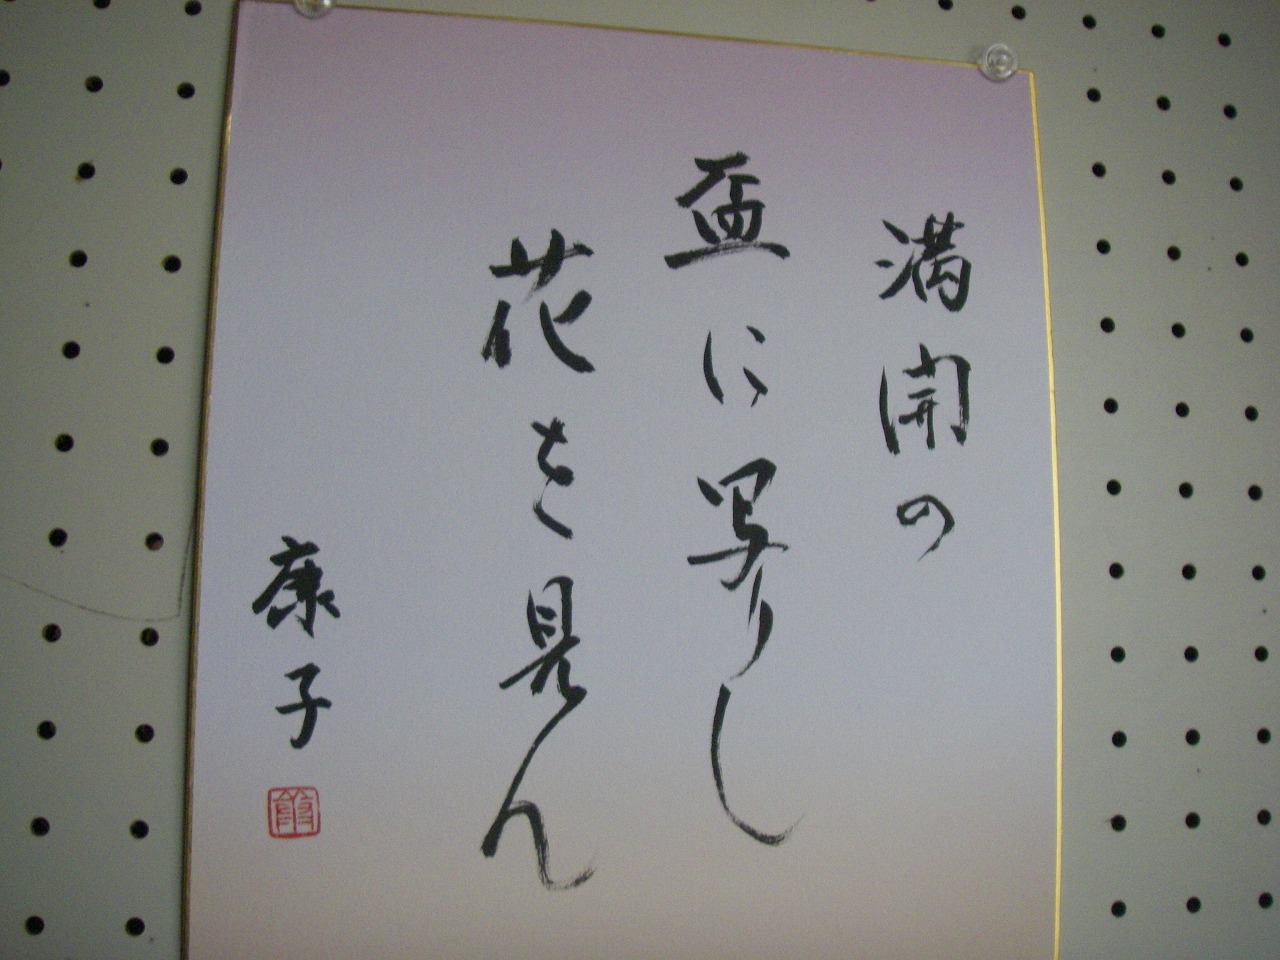 満開の
盃に写りし
花を見ん
康子